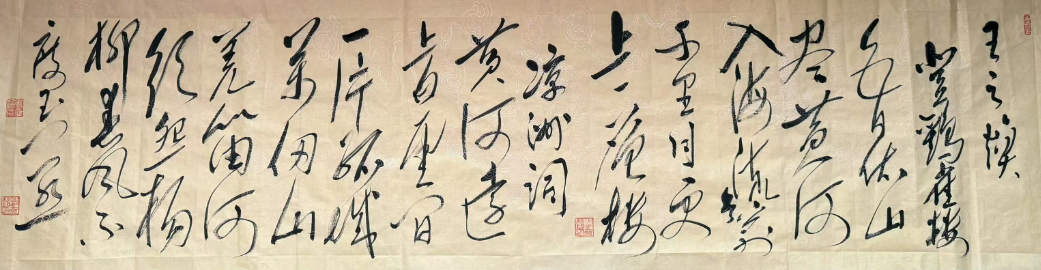 王之焕
登鹳雀楼
白日依山
尽黄河
入海流欲穷
千里目更
上一层楼
凉洲词
黄河远
上白云间
一片孤城
萬仞山
羌笛何
须怨杨
柳春风不
度玉门关